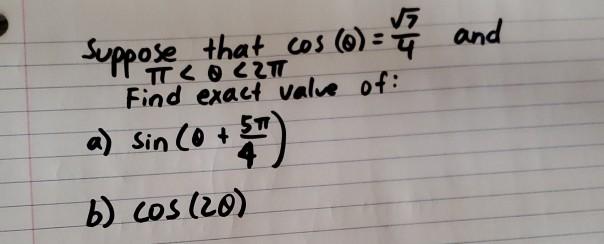 Suppose that cos (θ) = √7/4 and
π < θ < 2π
Find exact value of:
a) sin (θ + 5π/4)
b) cos (2θ)